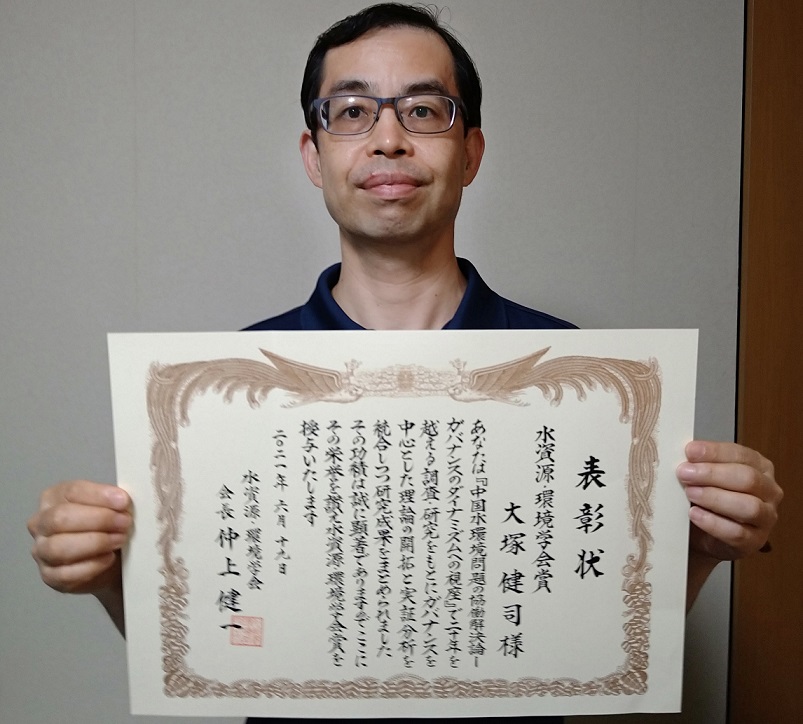 表彰状
水資源・環境学会賞
大塚健司様
あなたは『中国水環境問題の協働解決論―
ガバナンスのダイナミズムへの視座』で二十年を
越える調査・研究をもとにガバナンスを
中心とした理論の開拓と実証分析を
統合しつつ研究成果をまとめられました
その功積は誠に顕著でありますのでここに
その栄誉を讃え水資源・環境学会賞を
授与いたします
二〇二一年六月十九日
水資源・環境学会
会長 仲上健一